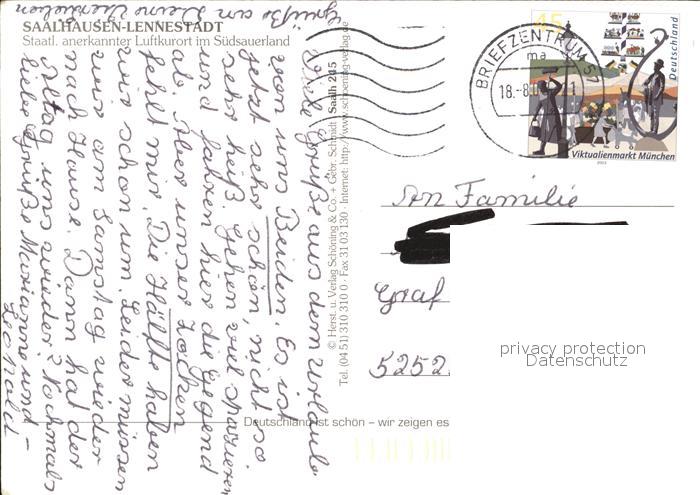 SAALHAUSEN-LENNESTADT
Staatl. anerkannter Luftkurort im Südsauerland
Viele Grüße aus dem Urlaub
von uns Beiden. Es ist
jetzt sehr schön, nicht so
sehr heiß. Gehen viel spazieren
und fahren hier die Gegend
ab. Aber unser
fehlt mir. Die Hälfte haben
wir schon um. Leider müssen
wir am Samstag wieder
nach Hause. Dann hat der
Alltag uns wieder. Nochmals
liebe Grüße Marianne und -
Leonald
Grüße an Deine
© Herst. u. Verlag Schöning & Co. + Gebr. Schmidt Saalh 245
Tel. (04 51) 310 310 0 · Fax 31 03 130 · Internet: http://www.schoening-verlag.de
45
Deutschland
Viktualienmarkt München
2003
BRIEFZENTRUM 57
ma
18.-8.0
An Familie
Graf
5252
privacy protection
Datenschutz
Deutschland ist schön – wir zeigen es